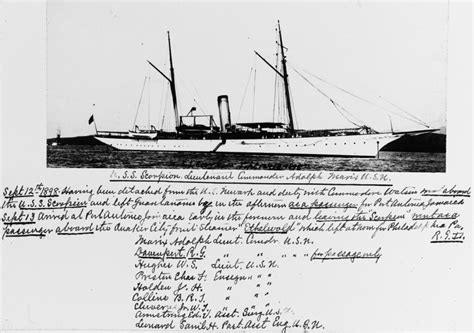 U.S.S. Scorpion. Lieutenant Commander Adolph Marix U.S.N.
Sept 12th 1898. Having been detached from the U.S. Newark and duty with Commodore Watson went aboard
the U.S.S. Scorpion and left Guantanamo bay in the afternoon as a passenger for Port Antonio Jamaica
Sept 13 Arrived at Port Antonio Jamaica Early in the forenoon and leaving the Scorpion went as a
passenger aboard the Quaker City fruit Steamer "Ethelwold" which left at noon for Philadelphia Pa.
R.G.D.
Marix Adolph Lieut. Comdr U.S.N.
Davenport R.G. " " " for passage only
Hughes W.S. Lieut. U.S.N.
Preston Chas F. Ensign " "
Holden J.H. " " "
Collins B.R.T. " " "
Cluverius Jr. W.T. " " "
Armstrong E.V. Asst. Surg U.S.N.
Lenard H. Past. Asst Eng. U.S.N.